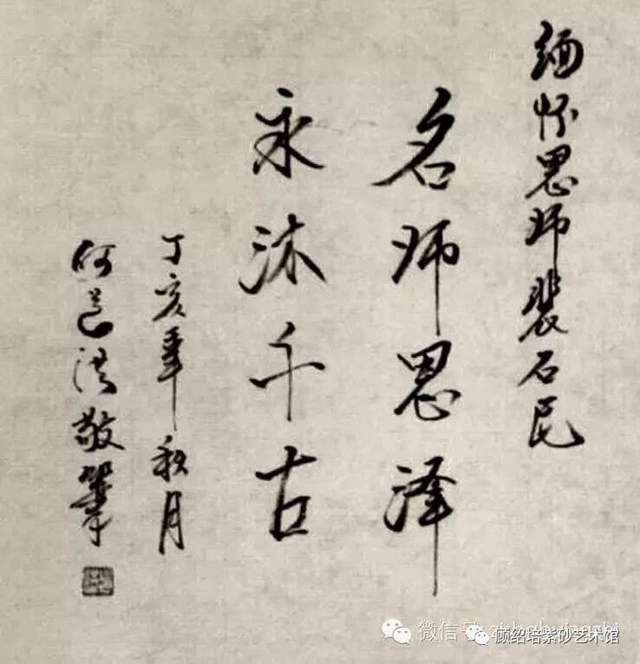 缅怀恩师裴石民
名师恩泽
永沐千古
丁亥年秋月
何道洪敬筆
微信号
顾绍培紫砂艺术馆